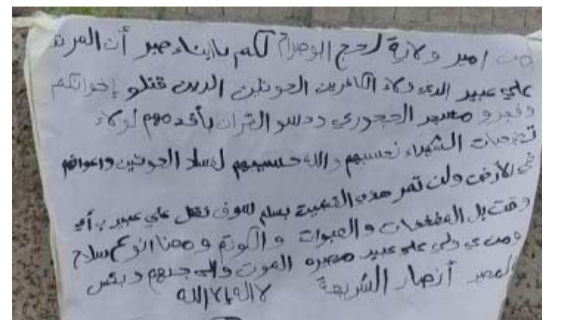 من امير ولاية لحج ابو صراح لكم يا ابناء صبر أن المرتد
علي عبير الدي ولاء الكافرين الحوثين الدين قتلو إخوانكم
وفجرو مسجد الحجوري ودسو القران بأقدمهم لولاء
تضحيات الشهداء نحسبهم والله حسيبهم لفساد الحوثين واعوانهم
في الأرض ولن تمر هذه بسلم لسوف نقتل علي عبير بأي
وقت بل المفخخات و العبوات و الكوتم و معنا انوع سلاح
ومن علي عبير مصيره الموت والى جهنم وبئس
المصير أنصار الشريعة لا اله الا الله